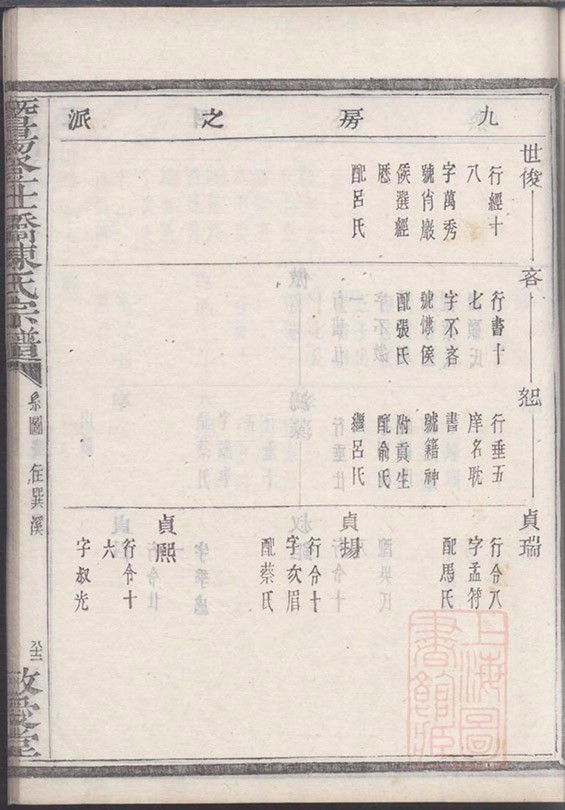 九房之派
世俊
行經十
八
字萬秀
號肖巖
候選經
歷
配呂氏
吝
行書十
七
字不吝
號慷侯
配張氏
恕
行垂五
庠名耽
書
號籍神
附貢生
配俞氏
繼呂氏
貞瑞
行令八
字孟符
配馬氏
貞揚
行令十
字次眉
配蔡氏
貞熙
行令十
六
字叔光
橋陳氏宗譜
系圖
在巽溪
敬愛堂
上海圖
書館藏